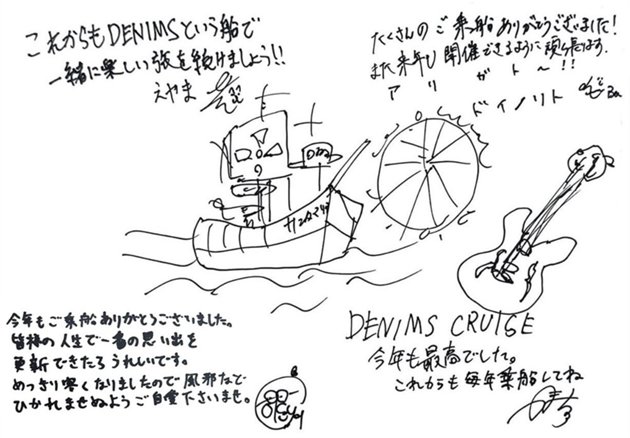 これからもDENIMSという船で
一緒に楽しい旅を続けましょう!!
えやま
たくさんのご乗船ありがとうございました!
また来年も開催できるように頑張ります.
アリガトー!!
ドイノリト
DENIMS CRUISE
今年も最高でした。
これからも毎年乗船してね
今年もご乗船ありがとうございました。
皆様の人生で一番の思い出を
更新できたらうれしいです。
めっきり寒くなりましたので風邪など
ひかれませぬようご自愛下さいませ。